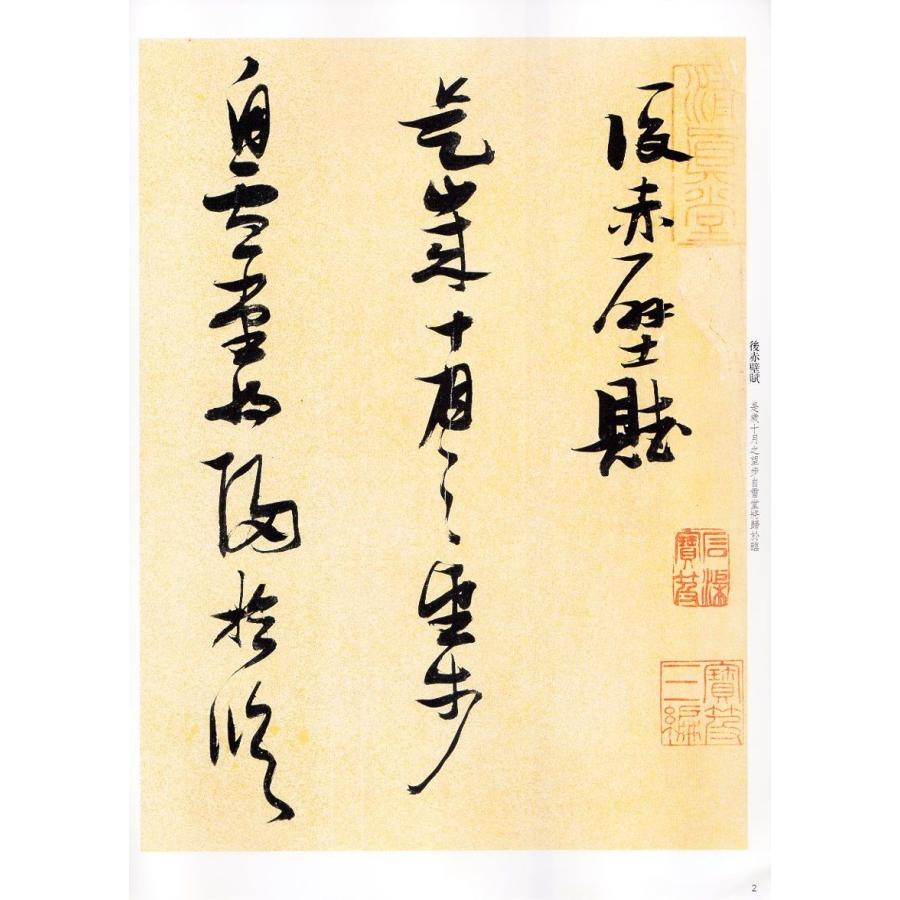 後赤壁賦
是歲十月之望步
自雪堂將歸於臨
後赤壁賦 是歲十月之望步自雪堂將歸於臨
寶笈三編
2